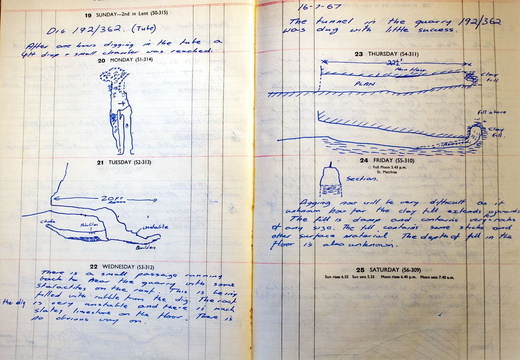 19 SUNDAY—2nd in Lent (50-315)
Dig 192/362. (Tube)
After one hours digging in the tube a
4ft drop + small chamber was reached.
20 MONDAY (51-314)
21 TUESDAY (52-313)
20m
unstable
Boulder
22 WEDNESDAY (53-312)
There is a small passage running
back to near the quarry with some
stalactites on the roof. This is being
filled with rubble from the dig. The roof
the dig is very unstable and there is much
slatey limestone on the floor. There is
no obvious way on.
16-7-67
The tunnel in the quarry 192/362
was dug with little success.
23 THURSDAY (54-311)
PLAN
Clay
fill
Fill above
Clay
Fill
24 FRIDAY (55-310)
Full Moon 5.43 p.m.
St. Matthias
Section.
Digging now will be very difficult as it
unknown how far the clay fill extends upwards
The fill is damp and contains
of any size. The fill contains some sticks and
other surface material. The depth of fill in the
floor is also unknown.
25 SATURDAY (56-309)
Sun rises 6.55 Sun sets 5.33 Moon rises 6.40 p.m. Moon sets 7.40 a.m.